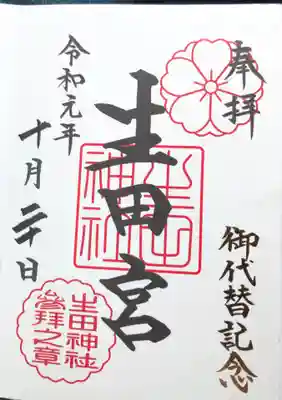 奉拝
御代替記念
生田宮
生田
神社
令和元年
十月二十日
生田神社
參拜之章